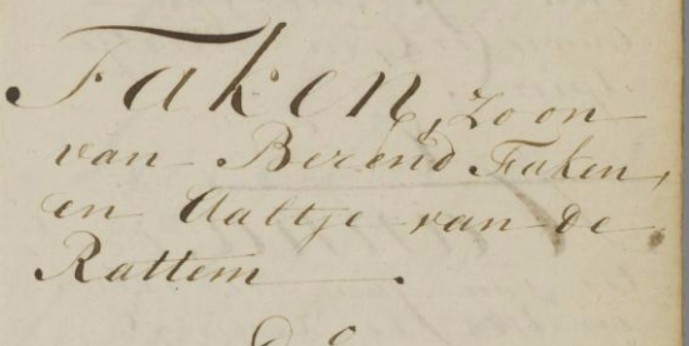 Faken, zoon
van Berend Faken,
en Aaltje van de
Rattem.